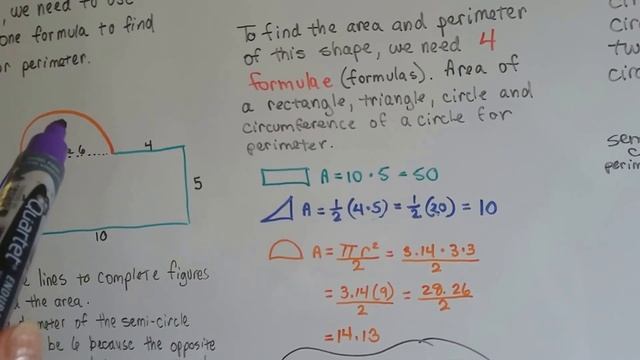 , we need to use
one formula to find
or perimeter.
6
4
5
10
Quartet
lines to complete figures
the area.
of the semi-circle
be 6 because the opposite
To find the area and perimeter
of this shape, we need 4
formulae (formulas). Area of
a rectangle, triangle, circle and
circumference of a circle for
perimeter.
A = 10 · 5 = 50
A = 1/2 (4·5) = 1/2 (20) = 10
A = πr²/2 = 3.14 · 3 · 3/2
= 3.14(9)/2 = 28.26/2
= 14.13
circ